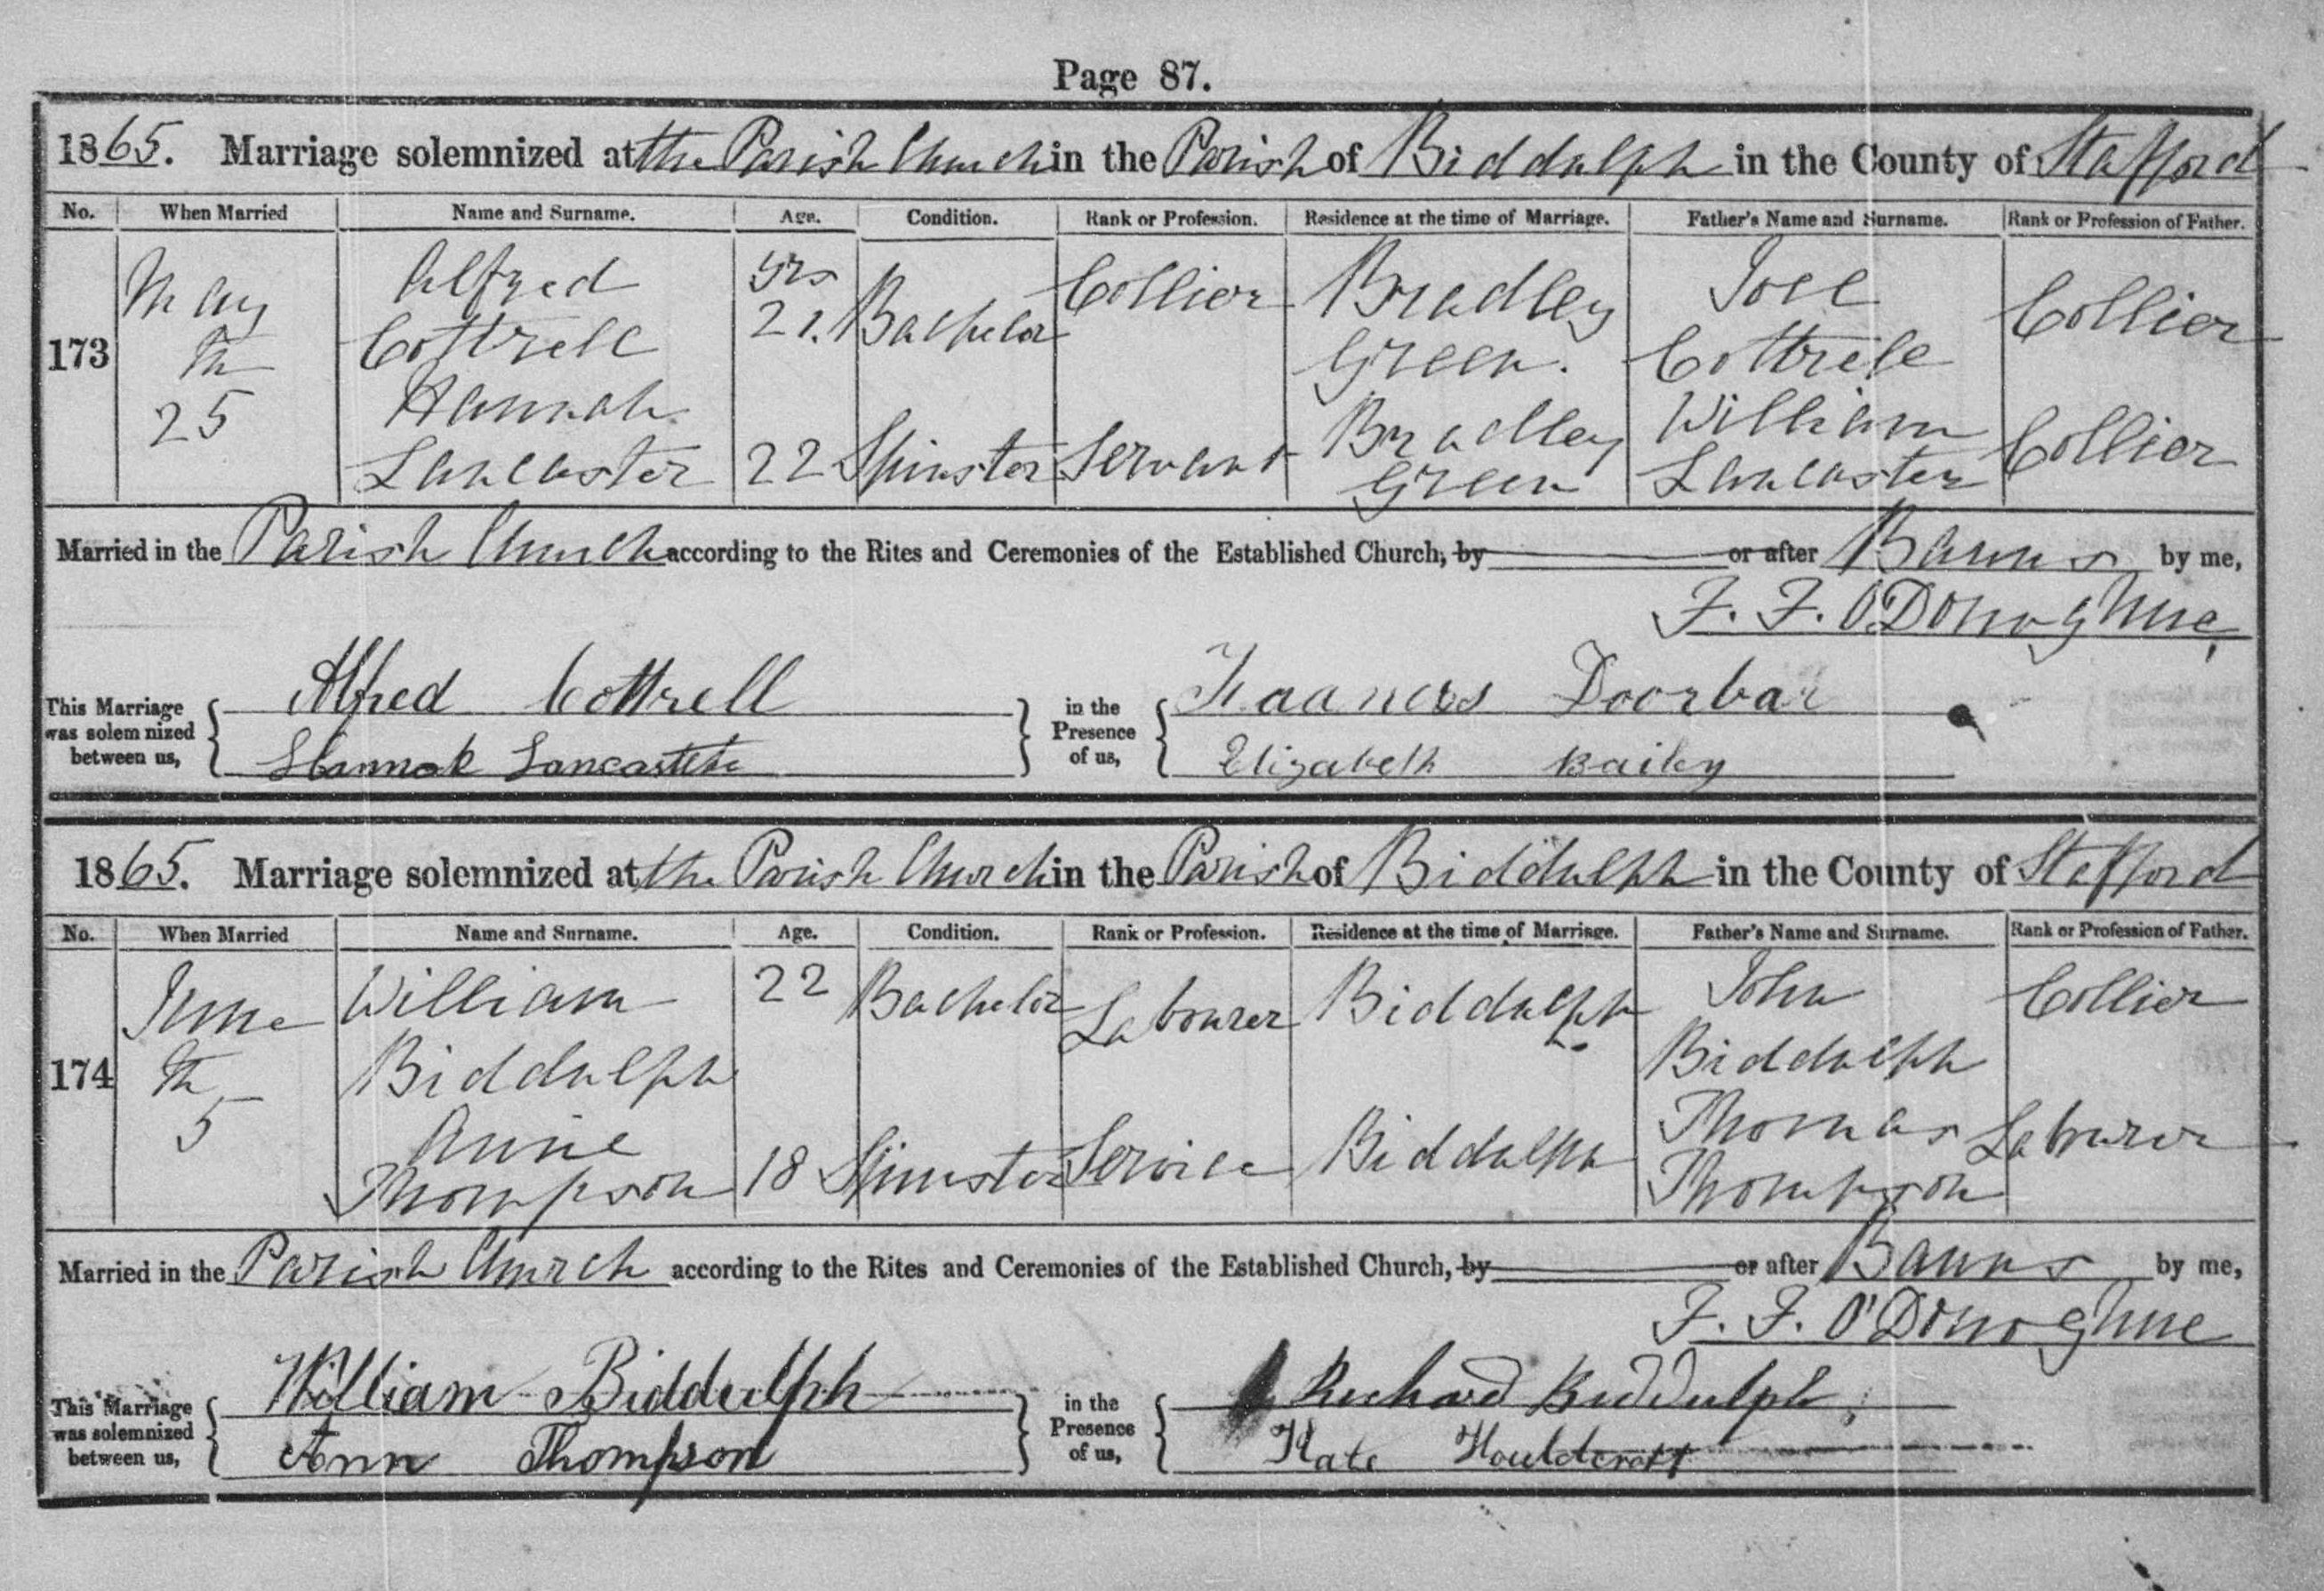 Page 87.
1865. Marriage solemnized at the Parish Church in the Parish of Biddulph in the County of Stafford
No. When Married Name and Surname. Age. Condition. Rank or Profession. Residence at the time of Marriage. Father's Name and Surname. Rank or Profession of Father.
173 May th 25 Alfred Cottrell yrs 21. Bachelor Collier Bradley Green. Joel Cottrell Collier
Hannah Lancaster 22 Spinster Servant Bradley Green William Lancaster Collier
Married in the Parish Church according to the Rites and Ceremonies of the Established Church, by or after Banns by me,
F. F. O'Donoghue,
This Marriage was solemnized between us, Alfred Cottrell in the Presence of us, Doorbar
Hannah Elizabeth Bailey
1865. Marriage solemnized at the Parish Church in the Parish of Biddulph in the County of Stafford
No. When Married Name and Surname. Age. Condition. Rank or Profession. Residence at the time of Marriage. Father's Name and Surname. Rank or Profession of Father.
174 June th 5 William Biddulph 22 Bachelor Labourer Biddulph. John Biddulph Collier
Anne Thompson 18 Spinster Service Biddulph Thomas Thompson Labourer
Married in the Parish Church according to the Rites and Ceremonies of the Established Church, by or after Banns by me,
F. F. O'Donoghue
This Marriage was solemnized between us, William Biddulph in the Presence of us, Richard Biddulph,
Ann Thompson Kate Houldcroft